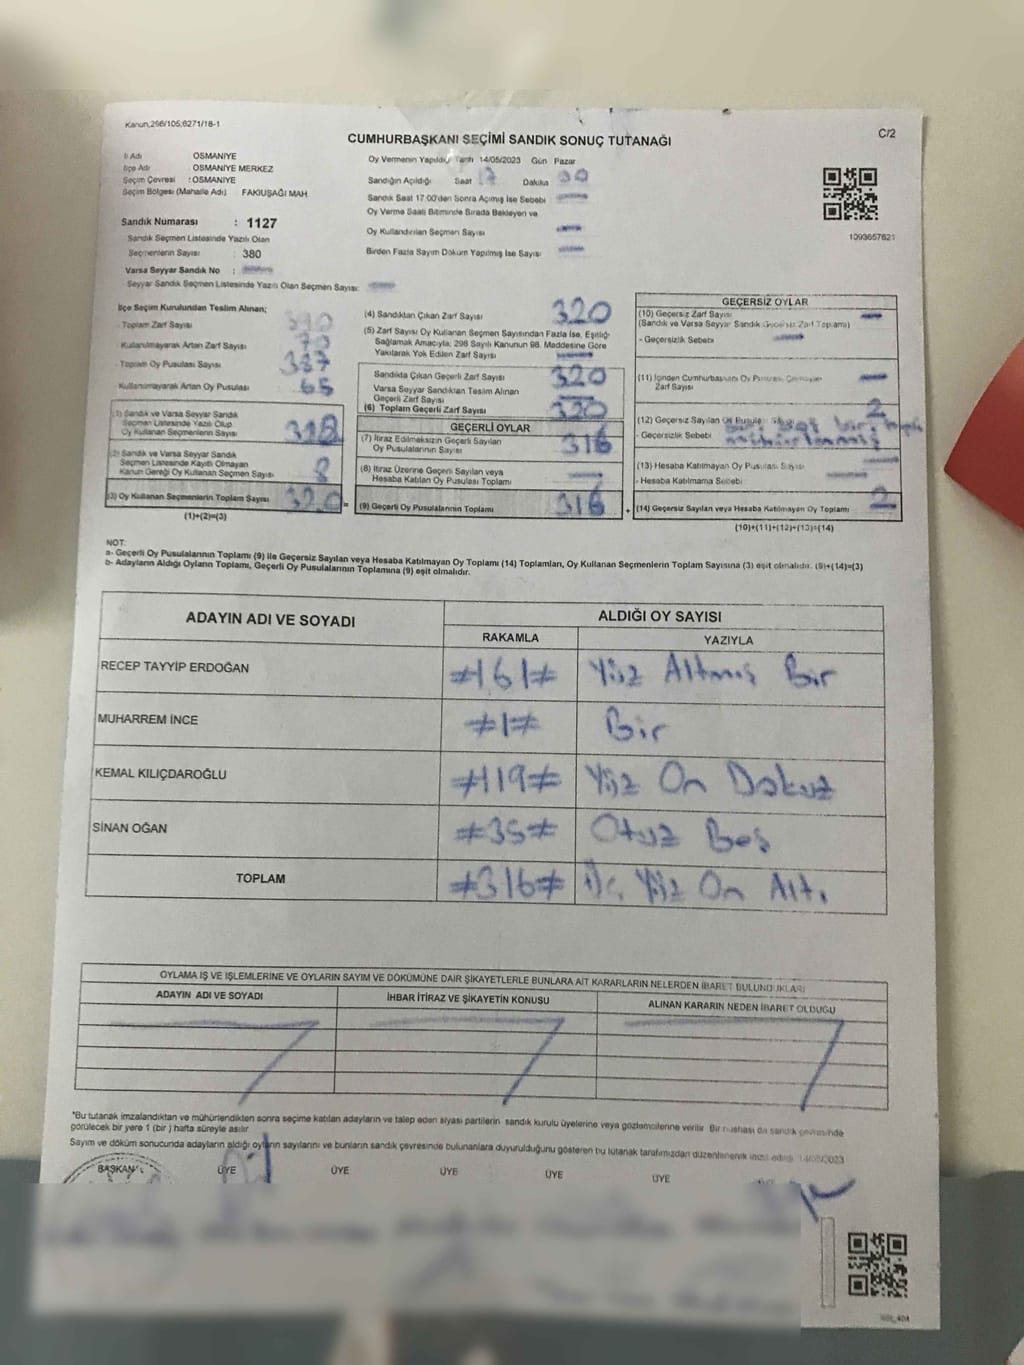 Kanun,298/105;6271/18-1
C/2
CUMHURBAŞKANI SEÇİMİ SANDIK SONUÇ TUTANAĞI
İl Adı OSMANİYE
İlçe Adı OSMANİYE MERKEZ
Seçim Çevresi : OSMANİYE
Seçim Bölgesi (Mahalle Adı) FAKIUŞAĞI MAH.
Sandık Numarası : 1127
Sandık Seçmen Listesinde Yazılı Olan
Seçmenlerin Sayısı : 380
Varsa Seyyar Sandık No :
Seyyar Sandık Seçmen Listesinde Yazılı Olan Seçmen Sayısı:
Oy Vermenin Yapıldığı Tarih 14/05/2023 Gün Pazar
Sandığın Açıldığı Saat 17 Dakika 30
Sandık Saat 17:00'den Sonra Açılmış İse Sebebi
Oy Verme Saati Bitiminde Sırada Bekleyen ve
Oy Kullandırılan Seçmen Sayısı
Birden Fazla Sayım Döküm Yapılmış İse Sayısı
1093657621
İlçe Seçim Kurulundan Teslim Alınan;
- Toplam Zarf Sayısı 390
- Kullanılmayarak Artan Zarf Sayısı 70
- Toplam Oy Pusulası Sayısı
- Kullanılmayarak Artan Oy Pusulası 65
(1) Sandık ve Varsa Seyyar Sandık
Seçmen Listesinde Yazılı Olup
Oy Kullanan Seçmenlerin Sayısı
(2) Sandık ve Varsa Seyyar Sandık
Seçmen Listesinde Kayıtlı Olmayan
Kanun Gereği Oy Kullanan Seçmen Sayısı
(3) Oy Kullanan Seçmenlerin Toplam Sayısı 320 =
(1)+(2)=(3)
(4) Sandıktan Çıkan Zarf Sayısı 320
(5) Zarf Sayısı Oy Kullanan Seçmen Sayısından Fazla İse, Eşitliği
Sağlamak Amacıyla, 298 Sayılı Kanunun 98. Maddesine Göre
Yakılarak Yok Edilen Zarf Sayısı
Sandıkta Çıkan Geçerli Zarf Sayısı 320
Varsa Seyyar Sandıktan Teslim Alınan
Geçerli Zarf Sayısı
(6) Toplam Geçerli Zarf Sayısı 320
GEÇERLİ OYLAR
(7) İtiraz Edilmeksizin Geçerli Sayılan
Oy Pusulalarının Sayısı 316
(8) İtiraz Üzerine Geçerli Sayılan veya
Hesaba Katılan Oy Pusulası Toplamı
(9) Geçerli Oy Pusulalarının Toplamı 316 +
GEÇERSİZ OYLAR
(10) Geçersiz Zarf Sayısı
(Sandık ve Varsa Seyyar Sandık Geçersiz Zarf Toplamı)
- Geçersizlik Sebebi
(11) İçinden Cumhurbaşkanı Oy Pusulası Çıkmayan
Zarf Sayısı
(12) Geçersiz Sayılan Oy Pusulası Sayısı 2
- Geçersizlik Sebebi
(13) Hesaba Katılmayan Oy Pusulası Sayısı
- Hesaba Katılmama Sebebi
(14) Geçersiz Sayılan veya Hesaba Katılmayan Oy Toplamı 2
(10)+(11)+(12)+(13)=(14)
NOT:
a- Geçerli Oy Pusulalarının Toplamı (9) ile Geçersiz Sayılan veya Hesaba Katılmayan Oy Toplamı (14) Toplamları, Oy Kullanan Seçmenlerin Toplam Sayısına (3) eşit olmalıdır. (9)+(14)=(3)
b- Adayların Aldığı Oyların Toplamı, Geçerli Oy Pusulalarının Toplamına (9) eşit olmalıdır.
ADAYIN ADI VE SOYADI ALDIĞI OY SAYISI
RAKAMLA YAZIYLA
RECEP TAYYİP ERDOĞAN ≠161≠ Yüz Altmış Bir
MUHARREM İNCE ≠1≠ Bir
KEMAL KILIÇDAROĞLU ≠119≠ Yüz On Dokuz
SİNAN OĞAN ≠35≠ Otuz Beş
TOPLAM ≠316≠ Üç Yüz On Altı
OYLAMA İŞ VE İŞLEMLERİNE VE OYLARIN SAYIM VE DÖKÜMÜNE DAİR ŞİKAYETLERLE BUNLARA AİT KARARLARIN NELERDEN İBARET BULUNDUKLARI
ADAYIN ADI VE SOYADI İHBAR İTİRAZ VE ŞİKAYETİN KONUSU ALINAN KARARIN NEDEN İBARET OLDUĞU
*Bu tutanak imzalandıktan ve mühürlendikten sonra seçime katılan adayların ve talep eden siyasi partilerin sandık kurulu üyelerine veya gözlemcilerine verilir. Bir nushası da sandık çevresinde
görülecek bir yere 1 (bir ) hafta süreyle asılır.
Sayım ve döküm sonucunda adayların aldığı oyların sayılarını ve bunların sandık çevresinde bulunanlara duyurulduğunu gösteren bu tutanak tarafımızdan düzenlenerek imza edildi. 14/05/2023
BAŞKAN ÜYE ÜYE ÜYE ÜYE ÜYE